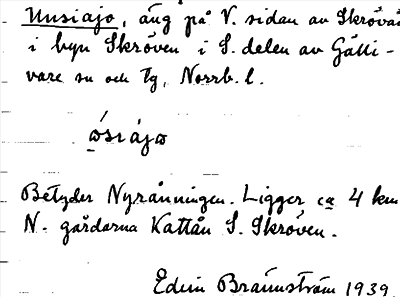 Uusiajo, äng på V. sidan av Skrövån
i byn Skröven i S. delen av Gälli-
vare sn och tg, Norrb. l.
ώsiájω
Betyder Nyrånningen. Ligger ca 4 km
N. gårdarna Kattån S. Skröven.
Edvin Brännström 1939.